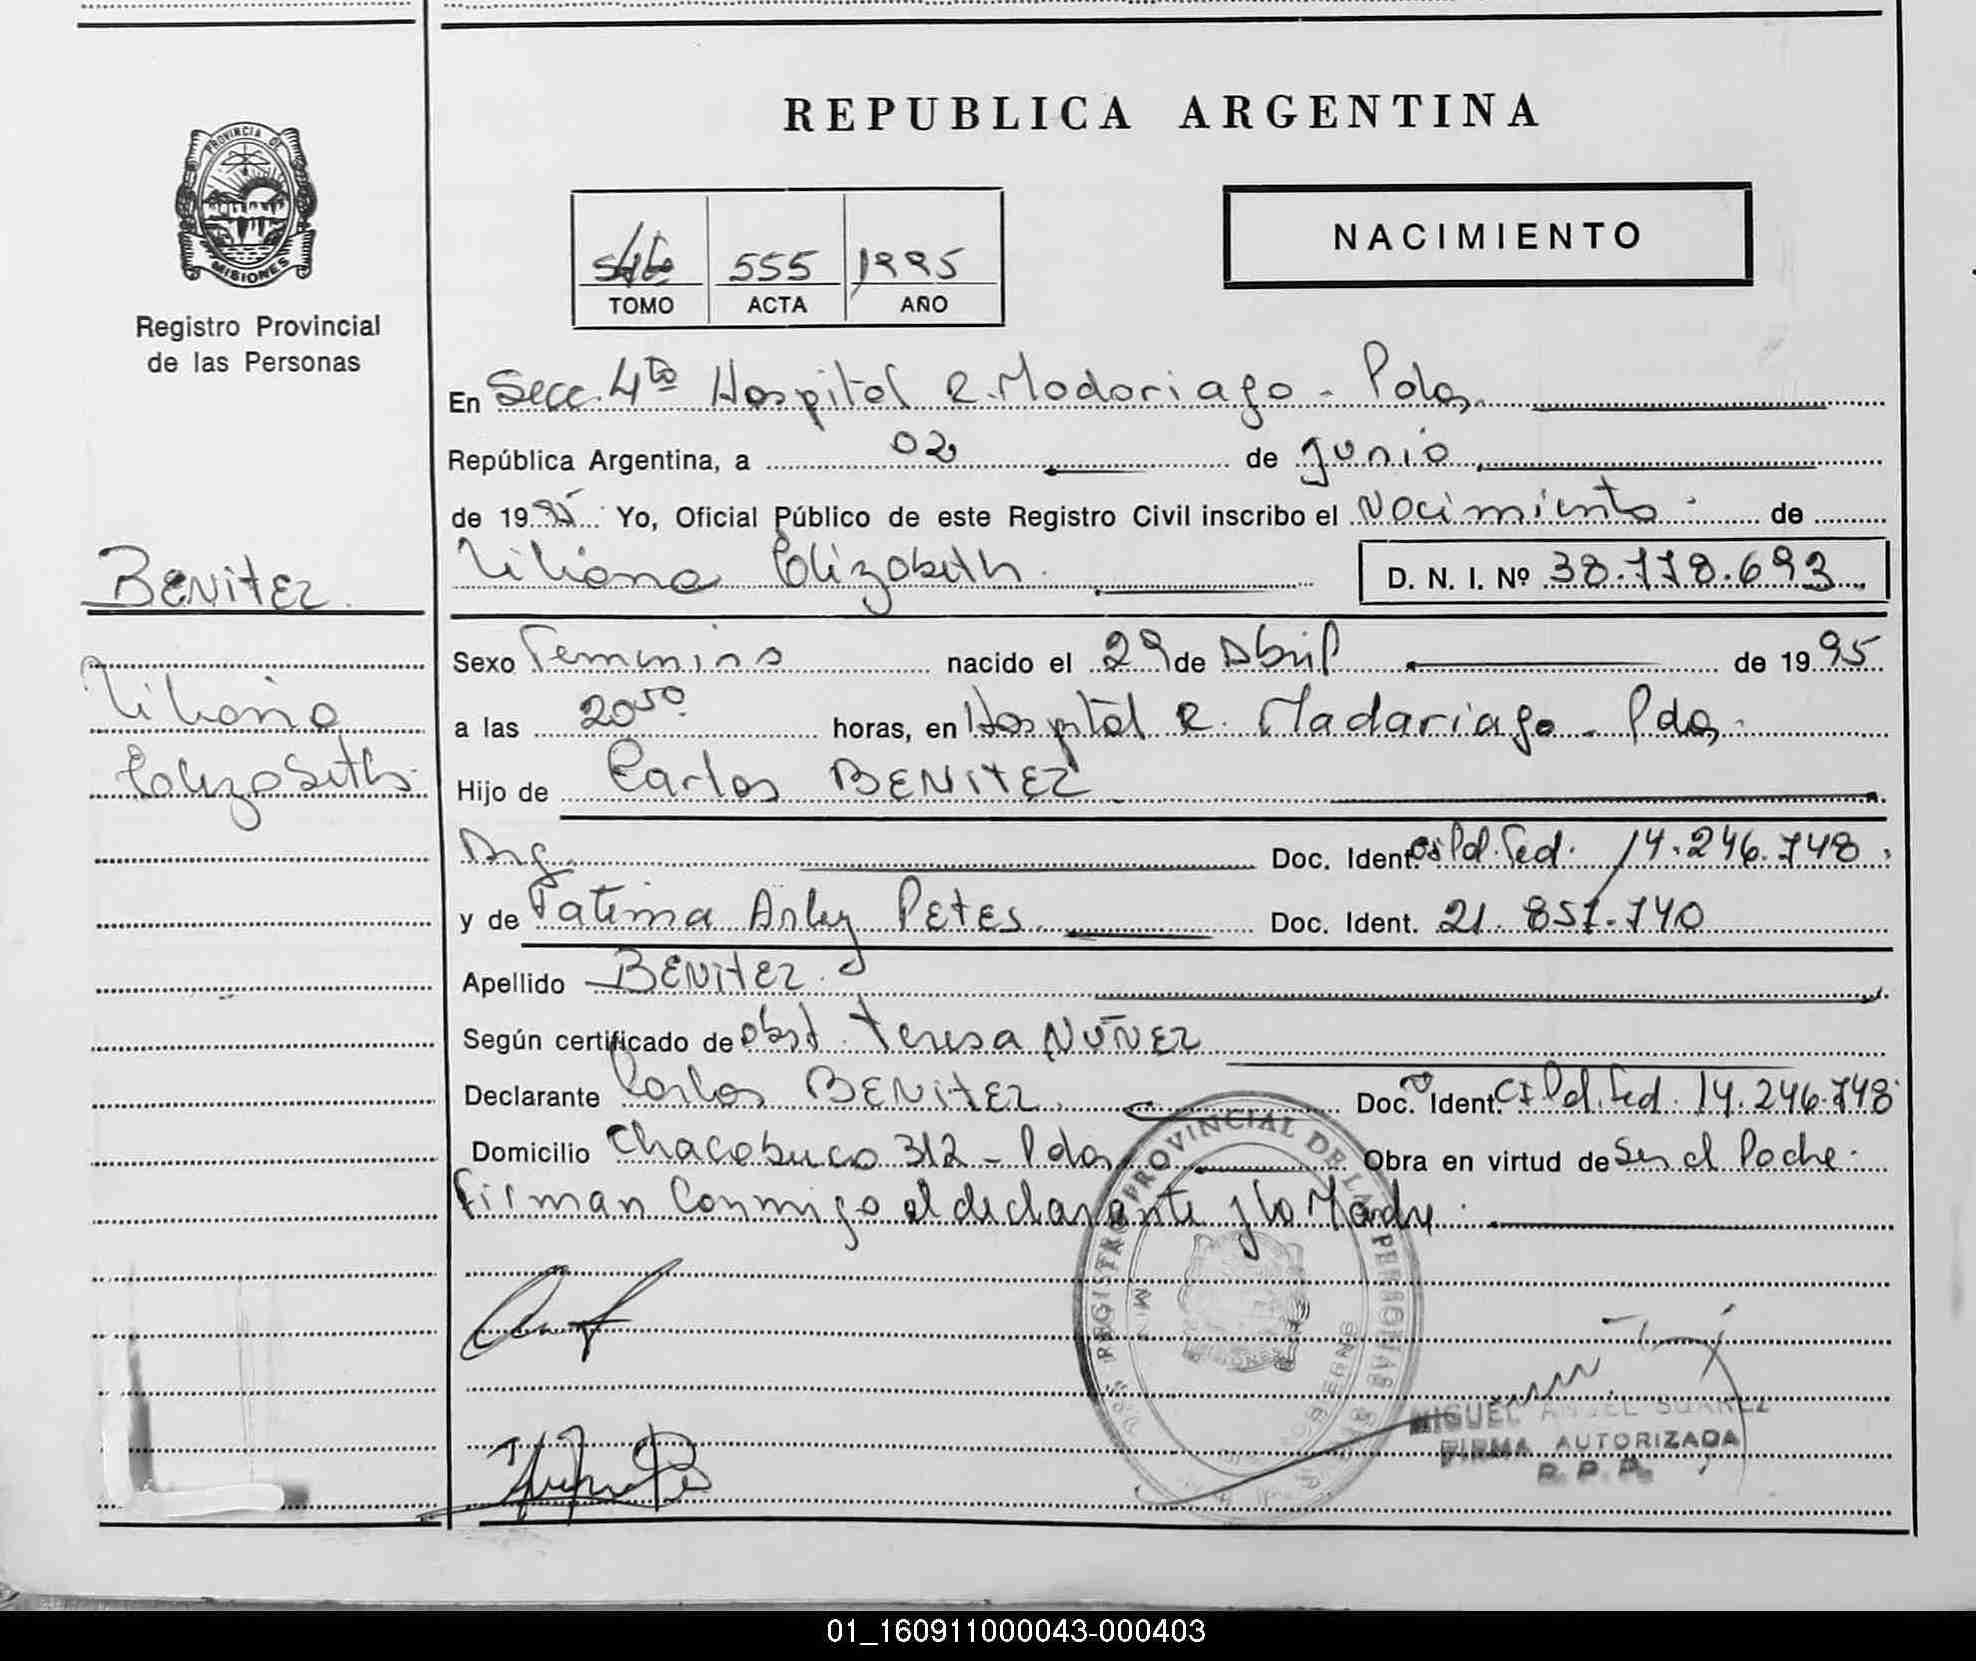 PROVINCIA DE
MISIONES
Registro Provincial
de las Personas
REPUBLICA ARGENTINA
NACIMIENTO
546 555 1995
TOMO ACTA AÑO
En Secc. 4ta Hospital R. Madariaga - Pdas.
República Argentina, a 02 de Junio
de 1995 Yo, Oficial Público de este Registro Civil inscribo el Nacimiento de
Liliana Elizabeth D. N. I. Nº 38.778.693
BENITEZ
Liliana
Elizabeth
Sexo Femenino nacido el 29 de Abril de 1995
a las 20:50 horas, en Hospital R. Madariaga - Pdas.
Hijo de Carlos BENITEZ
Arg. Doc. Ident. CI Pol. Fed. 14.246.748
y de Fatima Arley PETES Doc. Ident. 21.851.740
Apellido BENITEZ
Según certificado de Obst. Teresa NUÑEZ
Declarante Carlos BENITEZ Doc. Ident. CI Pol. Fed. 14.246.748
Domicilio Chacabuco 312 - Pdas Obra en virtud de Ser el Padre.
Firman Conmigo el declarante y la Madre.
REGISTRO PROVINCIAL DE LAS PERSONAS
MISIONES
MIGUEL ANGEL SUAREZ
FIRMA AUTORIZADA
R. P. P.
01_160911000043-000403